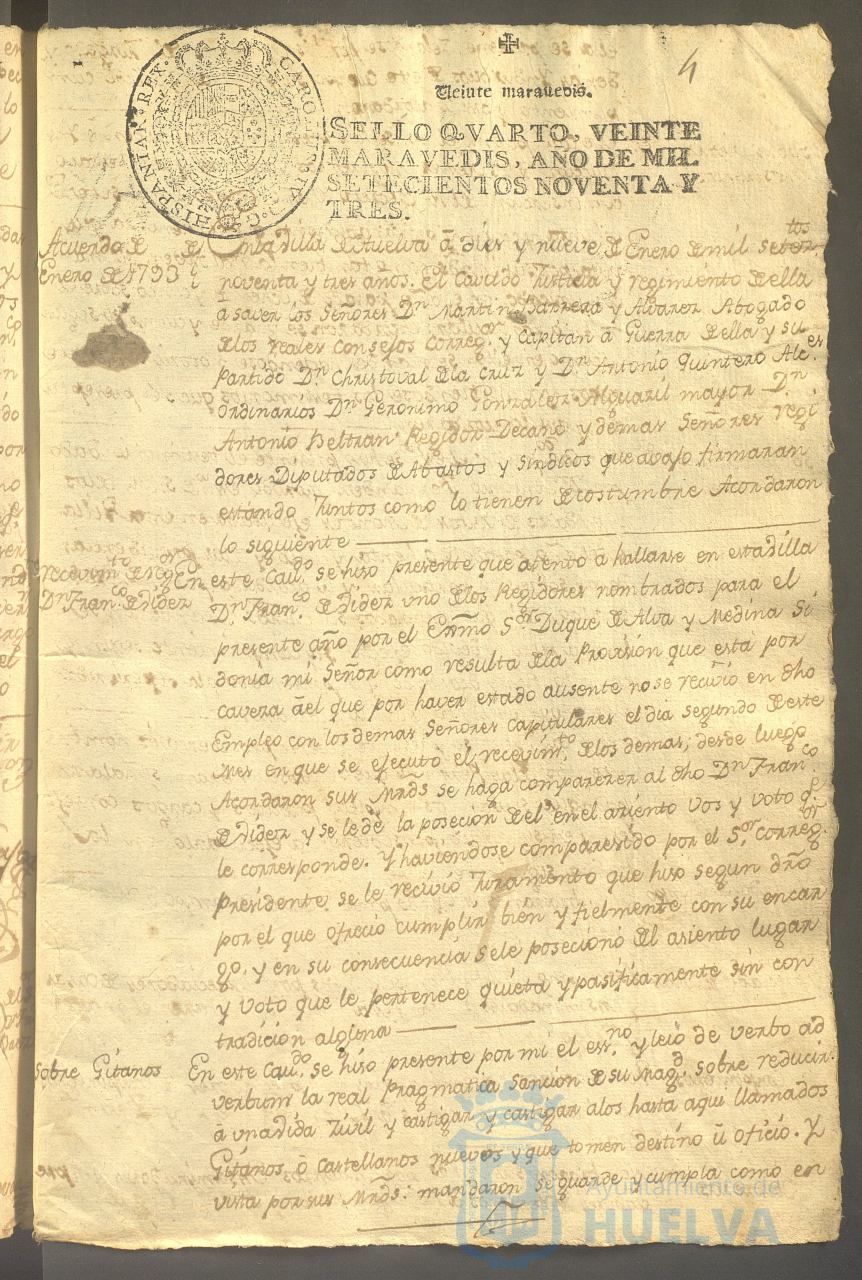 4
Veinte maravedis.
HISPANIAR. REX. CAROLUS IV D. G.
SELLO QVARTO, VEINTE
MARAVEDIS, AÑO DE MIL
SETECIENTOS NOVENTA Y
TRES.
Acuerdo de
Enero de 1793
En la Villa de Huelva à dies y nueve de Enero de mil setez.tos
noventa y tres años. El Cavildo Justicia y regimiento de ella
a saver los Señores Dn Martin Barrera y Alvarez Abogado
de los reales consejos Correg.or y Capitan à Guerra de ella y su
Partido Dn Christoval de la Cruz y Dn Antonio Quintero Alc.es
ordinarios Dn Geronimo Gonzalez Alguazil mayor Dn
Antonio Beltran Regidor Decano y demas Señores regi
dores Diputados de Abastos y Sindicos que avajo firmaran
estando Juntos como lo tienen de costumbre Acordaron
lo siguiente
recevim.to de reg.or
Dn Fran.co de Videz
En este Cau.do se hiso presente que atento à hallarse en esta Villa
Dn Fran.co de Videz uno de los Regidores nombrados para el
presente año por el Exmo S.or Duque de Alva y Medina Si
donia mi Señor como resulta de la Provision que esta por
cavera àel que por haver estado ausente no se recivio en dho
Empleo con los demas Señores capitulares el dia segundo de este
Mes en que se ejecutó el recevim.to de los demas, desde luego
Acordaron sus Mrds se haga comparezer al dho Dn Fran.co
de Videz y se le dé la posecion de el en el asiento vos y voto q.e
le corresponde. Y haviendose comparesido por el S.or Correg.or
Presidente se le recivió Juramento que hiso segun dro
por el que ofreció cumplir bien y fielmente con su encar
go. y en su consecuencia se le posecionó del asiento lugar
y voto que le pertenece quieta y pasificamente sin con
tradicion alguna
Sobre Gitanos
En este Cau.do se hiso presente por mi el ess.no y leio de verbo ad
verbum la real Pragmatica Sancion de su Mag.d sobre reducir
à vna vida Zivil y castigar y castigar alos hasta aqui llamados
Gitanos, ò Castellanos nuevos y que tomen destino ù oficio. Y
vista por sus Mrds: mandaron se guarde y cumpla como en
Ayuntamiento de
HUELVA